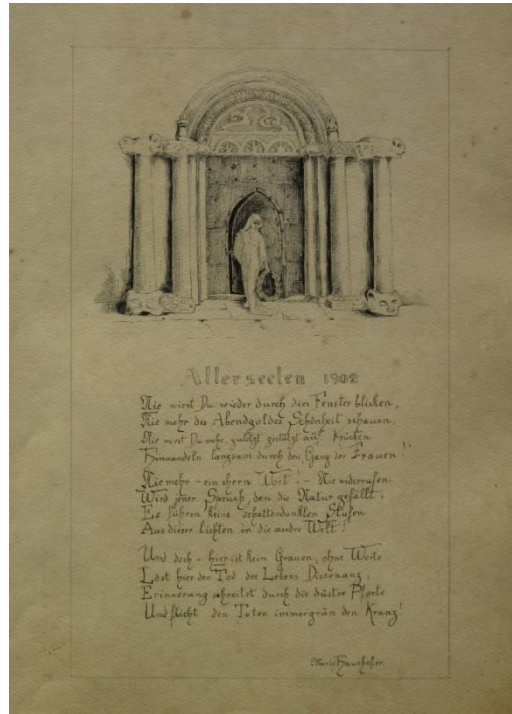 Allerseelen 1902
Nie wirst Du wieder durch dies Fenster blicken,
Nie mehr des Abendgoldes Schönheit schauen,
Nie wirst Du mehr, zuletzt gestützt auf Krücken
Hinwandeln langsam durch den Gang der Frauen!
Nie mehr - ein ehern Wort! - Nie widerrufen
Wird jener Spruch, den die Natur gefällt,
Es führen keine schattendunklen Stufen
Aus dieser lichten in die andre Welt!
Und doch - hier ist kein Grauen, ohne Worte
Löst hier der Tod des Lebens Dissonanz,
Erinnerung schreitet durch die düstre Pforte
Und flicht den Toten immergrün den Kranz!
Marie Haushofer